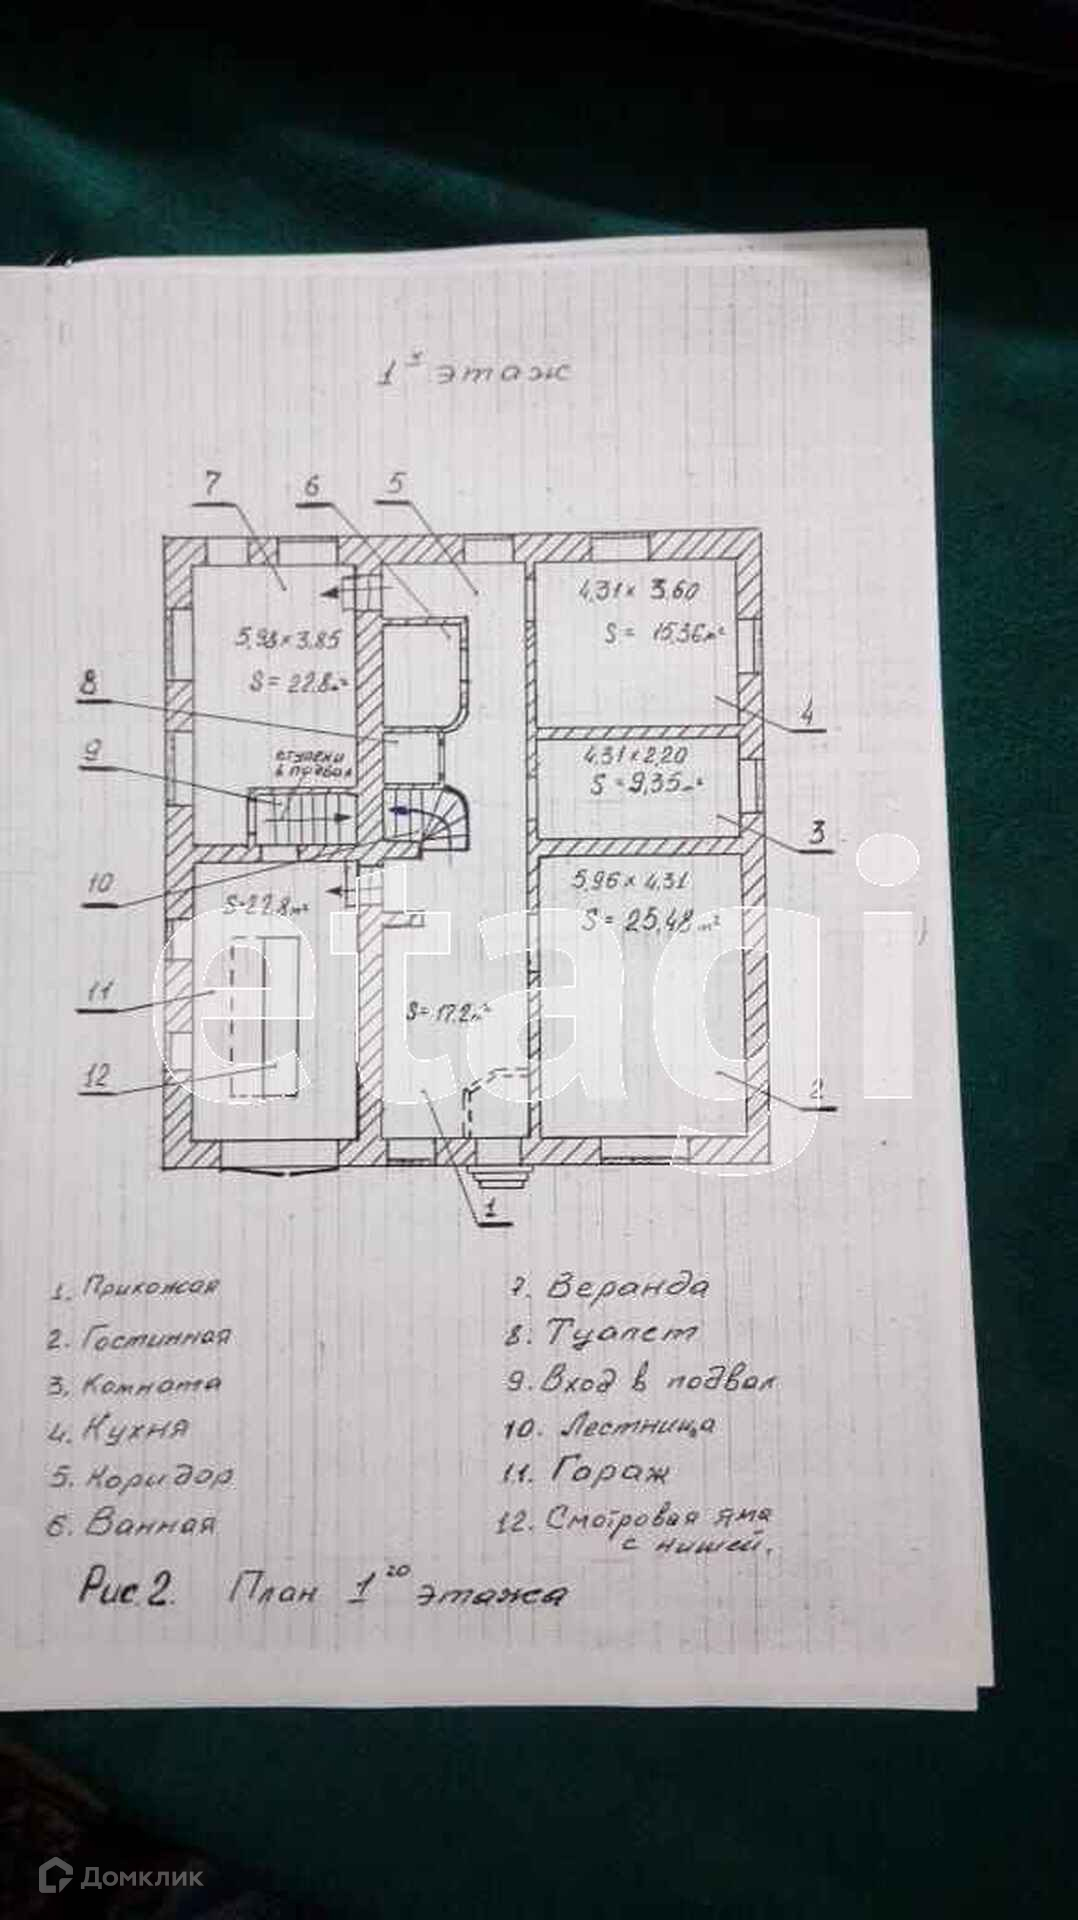 1й этаж
7
6
5
4,31 x 3,60
S = 15,36 м²
5,93 x 3,85
S = 22.8 м²
8
4
9
ступени
в подвал
4.31 x 2,20
S = 9,35 м²
3
10
S=22,8 м²
5,96 x 4,31
S = 25,48 м²
etagi
11
S=17.2 м²
12
2
1
1. Прихожая
2. Гостинная
3. Комната
4. Кухня
5. Коридор
6. Ванная
7. Веранда
8. Туалет
9. Вход в подвал
10. Лестница
11. Гараж
12. Смотровая яма
с нишей.
Рис. 2. План 1го этажа
Домклик